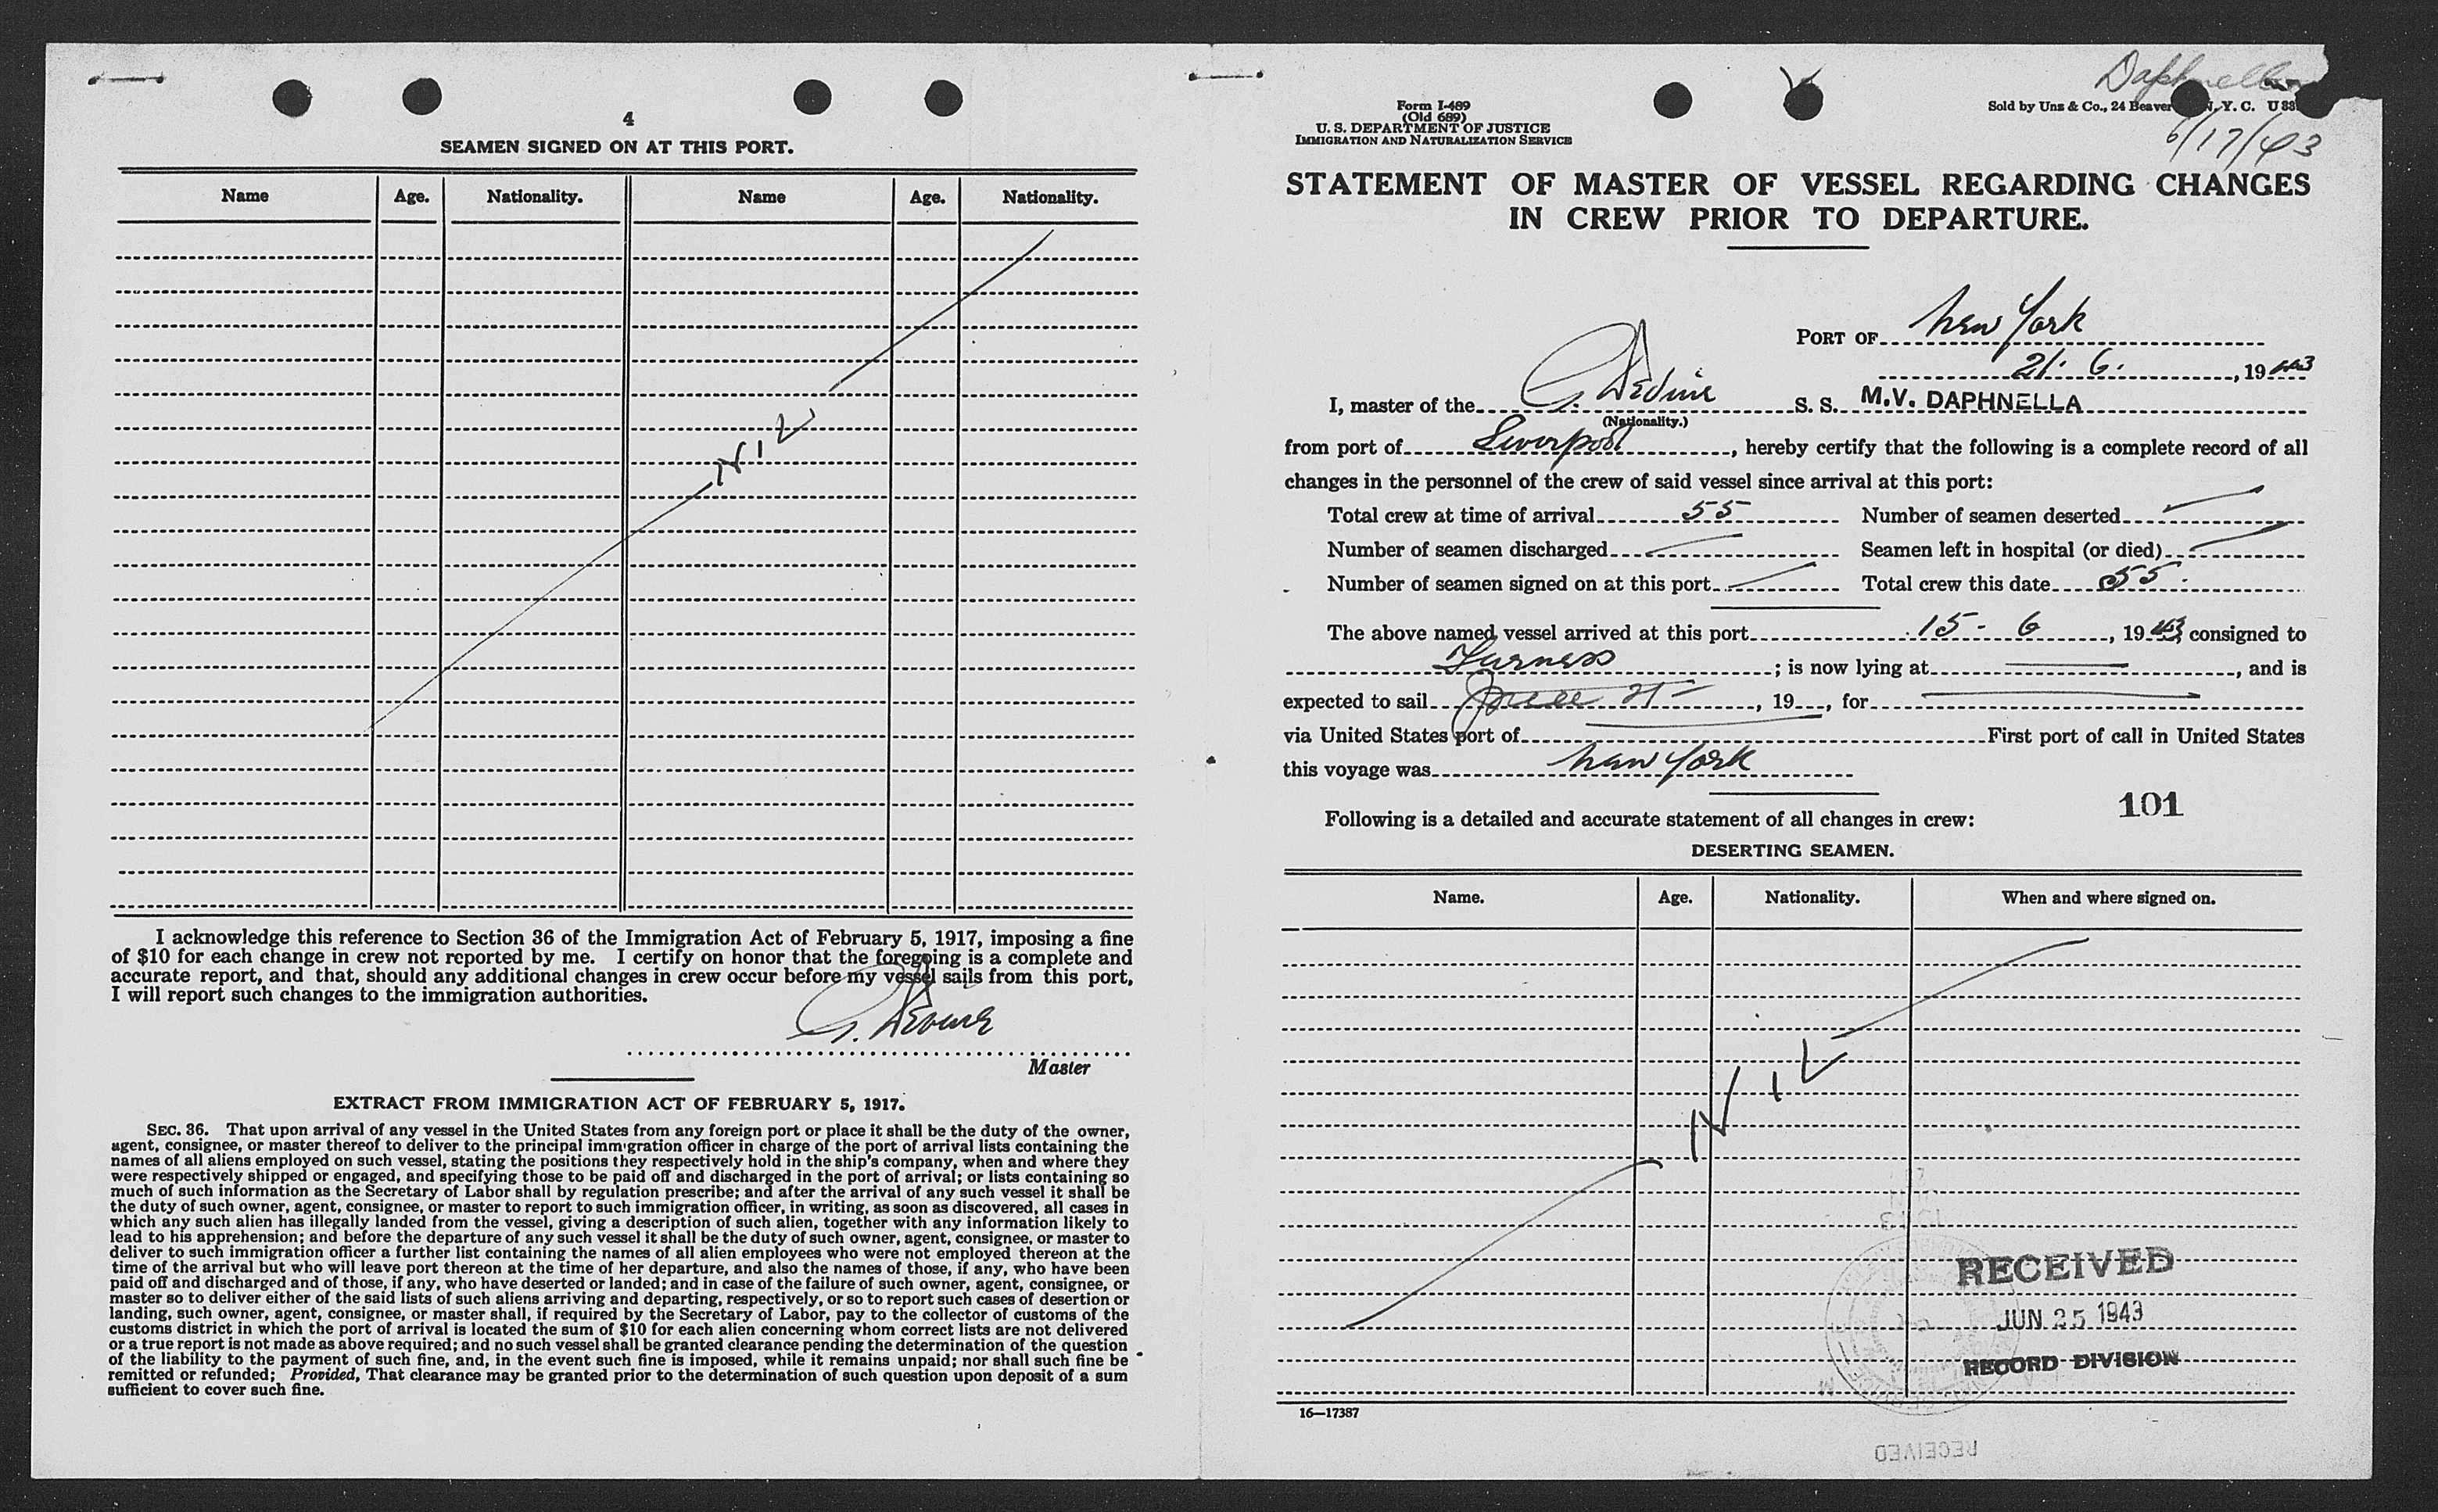 4
SEAMEN SIGNED ON AT THIS PORT.
Name Age. Nationality. Name Age. Nationality.
NIL
I acknowledge this reference to Section 36 of the Immigration Act of February 5, 1917, imposing a fine
of $10 for each change in crew not reported by me. I certify on honor that the foregoing is a complete and
accurate report, and that, should any additional changes in crew occur before my vessel sails from this port,
I will report such changes to the immigration authorities.
G. Devine
Master
EXTRACT FROM IMMIGRATION ACT OF FEBRUARY 5, 1917.
SEC. 36. That upon arrival of any vessel in the United States from any foreign port or place it shall be the duty of the owner,
agent, consignee, or master thereof to deliver to the principal immigration officer in charge of the port of arrival lists containing the
names of all aliens employed on such vessel, stating the positions they respectively hold in the ship's company, when and where they
were respectively shipped or engaged, and specifying those to be paid off and discharged in the port of arrival; or lists containing so
much of such information as the Secretary of Labor shall by regulation prescribe; and after the arrival of any such vessel it shall be
the duty of such owner, agent, consignee, or master to report to such immigration officer, in writing, as soon as discovered, all cases in
which any such alien has illegally landed from the vessel, giving a description of such alien, together with any information likely to
lead to his apprehension; and before the departure of any such vessel it shall be the duty of such owner, agent, consignee, or master to
deliver to such immigration officer a further list containing the names of all alien employees who were not employed thereon at the
time of the arrival but who will leave port thereon at the time of her departure, and also the names of those, if any, who have been
paid off and discharged and of those, if any, who have deserted or landed; and in case of the failure of such owner, agent, consignee, or
master so to deliver either of the said lists of such aliens arriving and departing, respectively, or so to report such cases of desertion or
landing, such owner, agent, consignee, or master shall, if required by the Secretary of Labor, pay to the collector of customs of the
customs district in which the port of arrival is located the sum of $10 for each alien concerning whom correct lists are not delivered
or a true report is not made as above required; and no such vessel shall be granted clearance pending the determination of the question
of the liability to the payment of such fine, and, in the event such fine is imposed, while it remains unpaid; nor shall such fine be
remitted or refunded; Provided, That clearance may be granted prior to the determination of such question upon deposit of a sum
sufficient to cover such fine.
Daphnella
Form I-489
(Old 689)
U. S. DEPARTMENT OF JUSTICE
IMMIGRATION AND NATURALIZATION SERVICE
Sold by Unz & Co., 24 Beaver N. Y. C. U 83
6/17/43
STATEMENT OF MASTER OF VESSEL REGARDING CHANGES
IN CREW PRIOR TO DEPARTURE.
PORT OF New York
21. 6. , 1943
I, master of the G. Devine S. S. M.V. DAPHNELLA
(Nationality.)
from port of Liverpool, hereby certify that the following is a complete record of all
changes in the personnel of the crew of said vessel since arrival at this port:
Total crew at time of arrival 55 Number of seamen deserted
Number of seamen discharged Seamen left in hospital (or died)
Number of seamen signed on at this port Total crew this date 55.
The above named vessel arrived at this port 15 - 6 , 1943 consigned to
Furness ; is now lying at , and is
expected to sail June 21 , 19 , for
via United States port of First port of call in United States
this voyage was New York
101
Following is a detailed and accurate statement of all changes in crew:
DESERTING SEAMEN.
Name. Age. Nationality. When and where signed on.
NIL
RECEIVED
JUN 25 1943
RECORD DIVISION
16—17387
RECEIVED